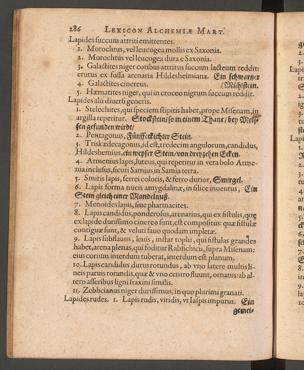 286 LEXICON ALCHEMIÆ MART.
Lapides succum attriti emittentes.
1. Morochius, vel leucogea mollis ex Saxonia.
2. Morochius vel leucogea dura e Saxonia.
3. Galactites niger cotibus attritus succum lacteum reddit:
erutus ex fossa arenaria Hildesheimiana. Ein schwartzer
4. Galactites cinereus. (Mühlstein.
5. Hæmatites niger, qui in croceo nigrum succum reddit.
Lapides alii diversi generis.
1. Stelechites, qui speciem stipitis habet, prope Misenam, in
argilla reperitur. Stockstein/ so in einem Thane/ bey Meis-
sen gefunden wirdt/
2. Pentagonus, Fünffeckichter Stein.
3. Triskædecagonus, id est, tredecim angulorum, candidus,
Hildeshemius, ein weisser Stein/ von dreyzehen Ecken.
4. Armenius lapis, luteus, qui reperitur in vera bolo Arme-
na inclusus, sicut Samius in Samia terra.
5. Smiris lapis, ferrei coloris, & ferro durior, Smirgel.
6. Lapis forma nucis amygdalinæ, in silice inuentus, Ein
Stein gleich einer Mandelnuß.
7. Menoides lapis, siue pharmacites.
8. Lapis candidus, ponderosus, arenarius, qui ex fistulis, quæ
ex lapide durissimo cinereo sunt, est compositus: quæ fistulæ
contiguæ sunt, & veluti fauo quodam impletæ.
9. Lapis subflauus, leuis, instar tophi, qui fistulas grandes
habet, terra plenas, qui foditur Rabschicii, supra Misenam:
eius corium interdum tuberat, interdum est planum.
10. Lapis candidus durus rotundus, ab vno latere multis li-
neis parus rotundis, quæ & vno centro fluunt, ornatus: ab al-
tero asseribus ligni fraxini similis.
11. Zeblicianus niger durissimus, in quo plurimi granati.
Lapides rudes. 1. Lapis rudis, viridis, vt Iaspis impurus. Ein
gemei-